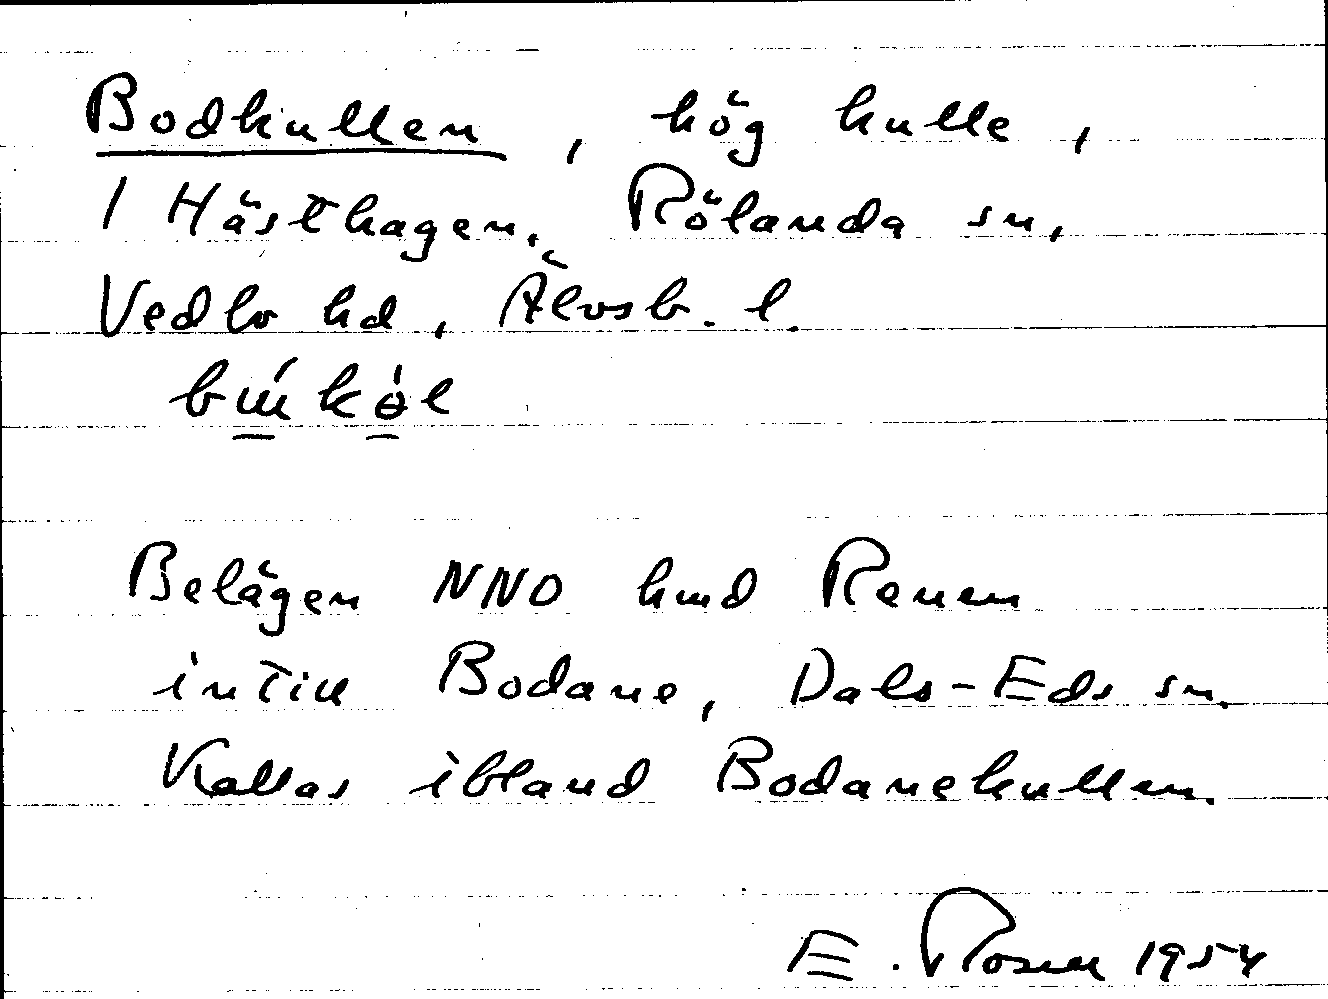 Bodkullen, hög kulle,
i Hästhagen, Rölanda sn,
Vedbo hd, Älvsb. l.
Belägen NNO hmd Renen
intill Bodane, Dals-Eds sn.
Kallas ibland Bodanekullen.
E. Rosell 1954